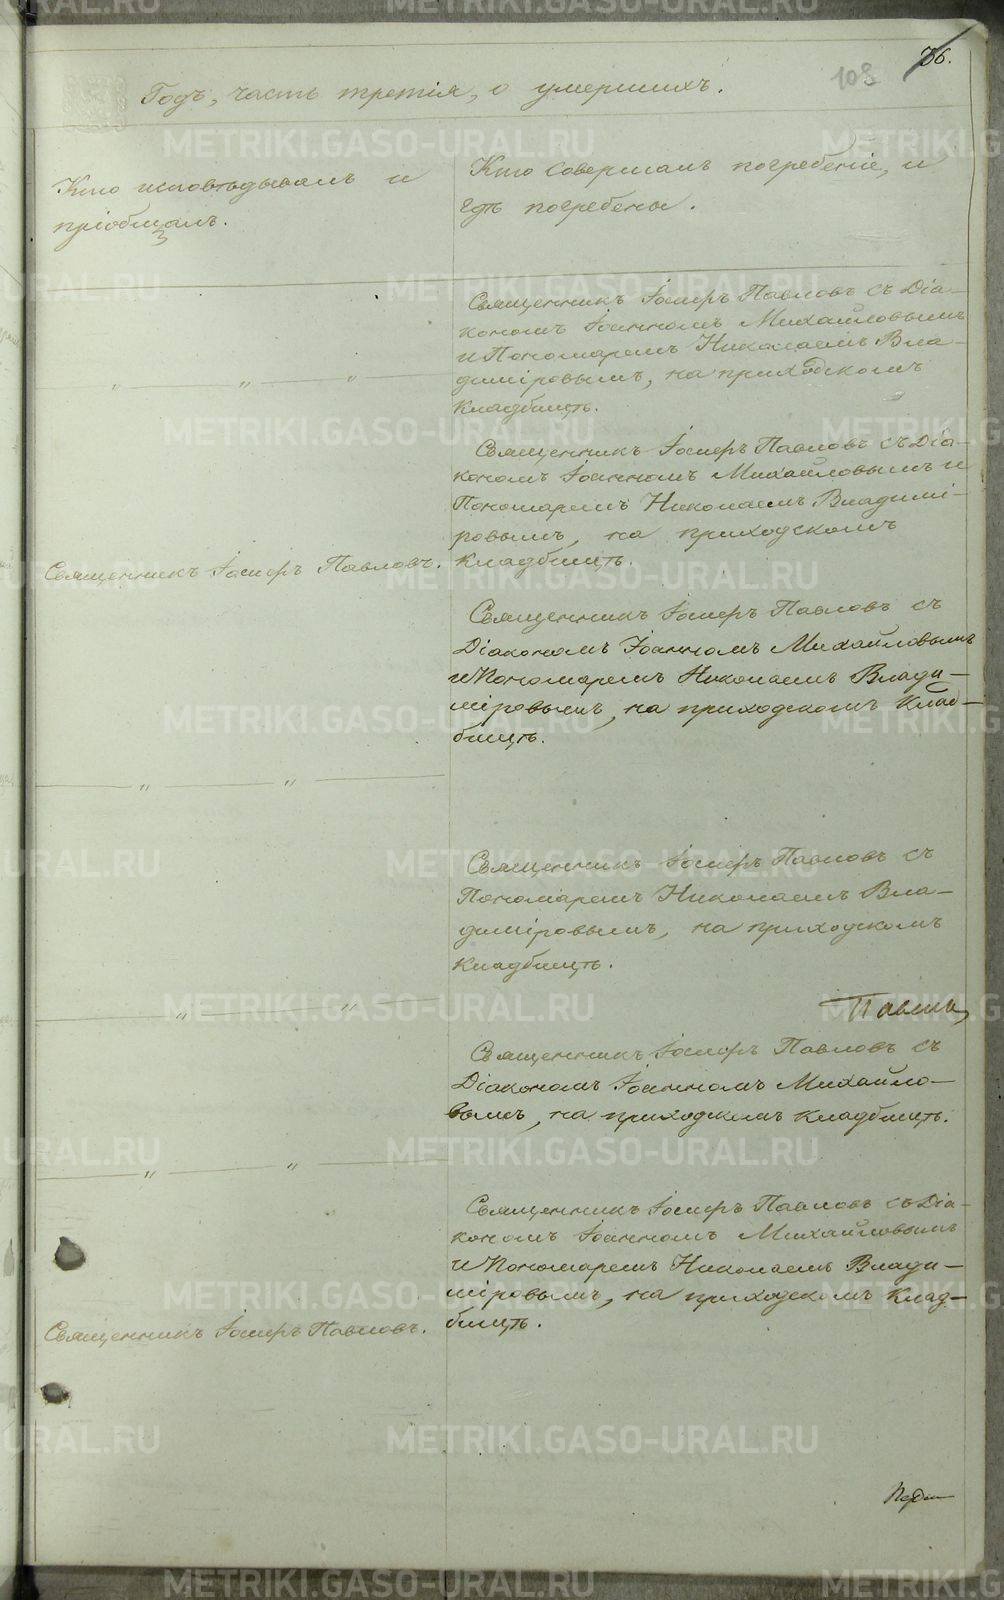 76.
103
Годъ, часть третія, о умершихъ.
Кто исповѣдывалъ и
пріобщалъ.
Кто совершалъ погребеніе, и
гдѣ погребены.
Священникъ Іосифъ Павловъ съ Діа-
кономъ Іоанномъ Михайловымъ
и Пономаремъ Николаемъ Вла-
диміровымъ, на приходскомъ
кладбищѣ.
Священникъ Іосифъ Павловъ съ Діа-
кономъ Іоанномъ Михайловымъ и
Пономаремъ Николаемъ Владимі-
ровымъ, на приходскомъ
Священникъ Іосифъ Павловъ.
кладбищѣ.
Священникъ Іосифъ Павловъ съ
Діакономъ Іоанномъ Михайловымъ
и Пономаремъ Николаемъ Влади-
міровымъ, на приходскомъ Клад-
бищѣ.
Священникъ Іосифъ Павловъ съ
Пономаремъ Николаемъ Вла-
диміровымъ, на приходскомъ
кладбищѣ.
Священникъ Іосифъ Павловъ съ
Діакономъ Іоанномъ Михайло-
вымъ, на приходскомъ кладбищѣ.
Священникъ Іосифъ Павловъ съ Діа-
кономъ Іоанномъ Михайловымъ
и Пономаремъ Николаемъ Влади-
міровымъ, на приходскомъ Клад-
бищѣ.
Священникъ Іосифъ Павловъ.
METRIKI.GASO-URAL.RU